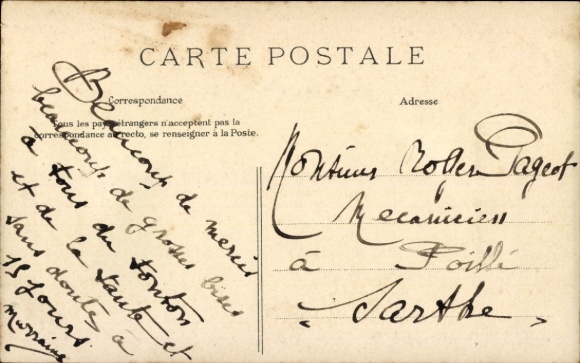 CARTE POSTALE
Correspondance
Tous les pays étrangers n'acceptent pas la
correspondance au recto, se renseigner à la Poste.
Adresse
Beaucoup de mercis
beaucoup de grosses bises
a tous du tonton
et de la tante et
sans doute à
15 jours
Marraine
Monsieur Roger Pageot
Mecanicien
à Poillé
Sarthe